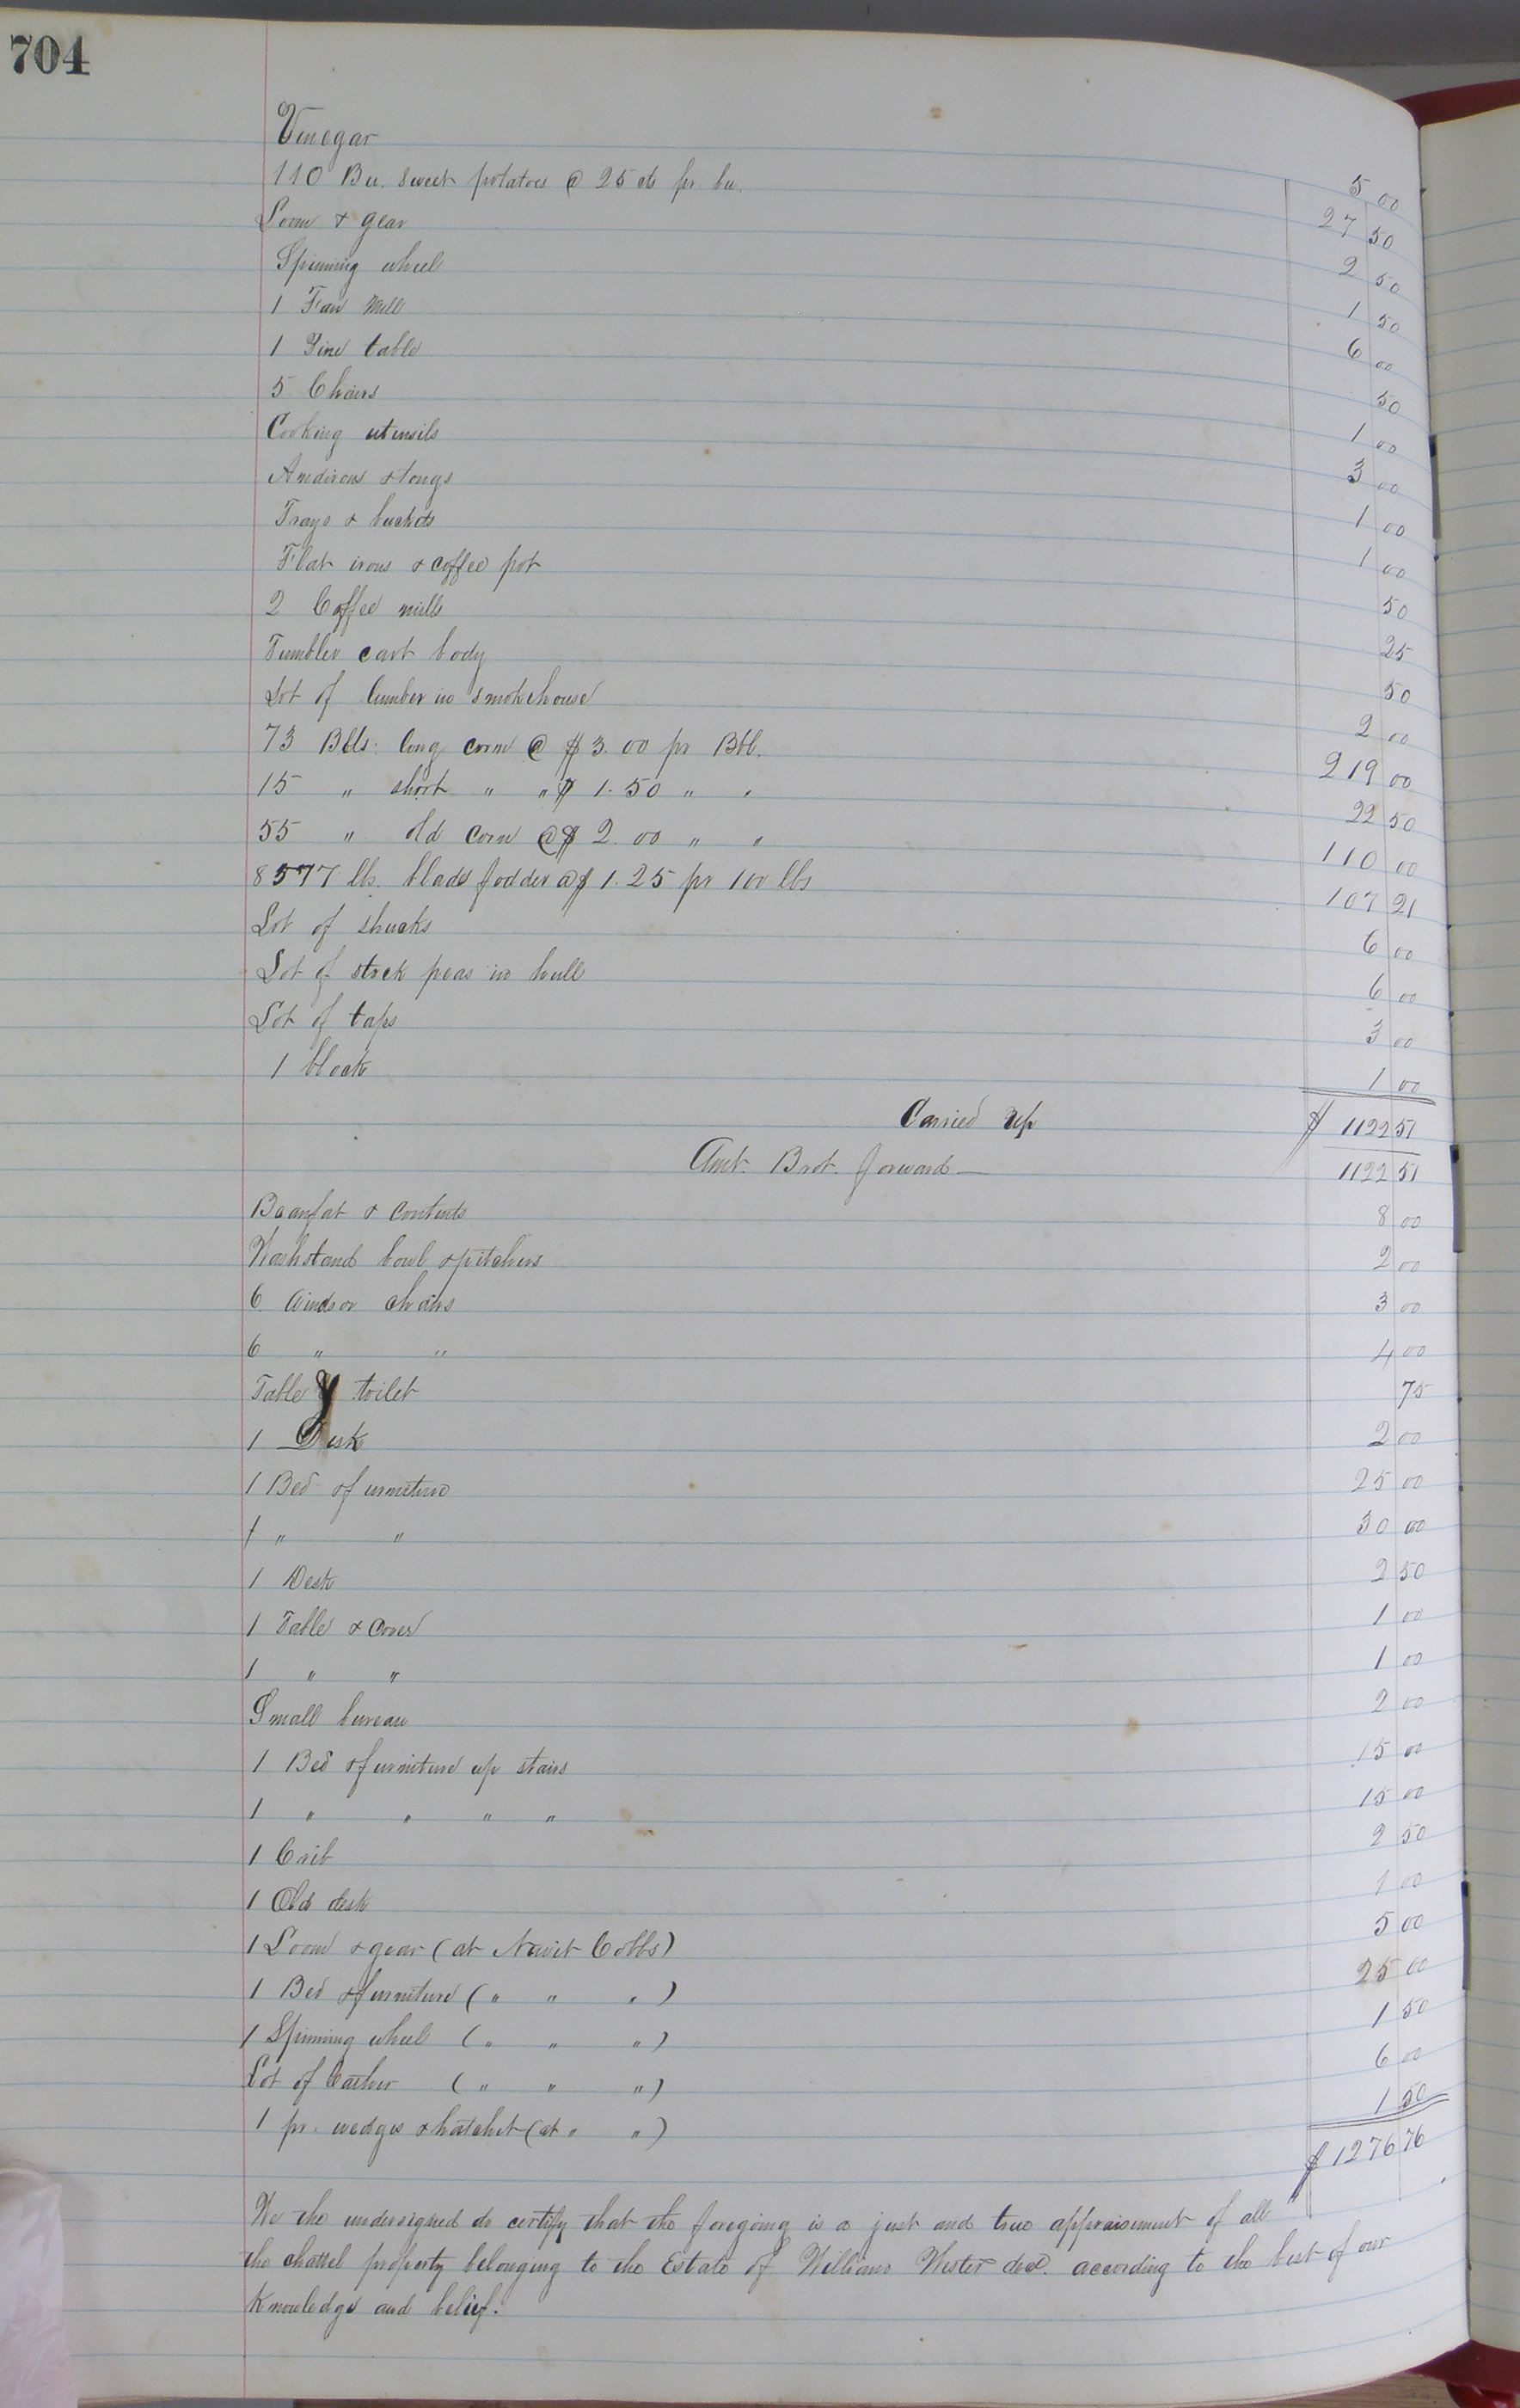 704
Vinegar 5 00
110 Bu. Sweet potatoes @ 25 cts pr. bu. 27 50
Loom & gear 2 50
Spinning wheel 1 50
1 Fan Mill 6 00
1 Pine table 50
5 Chairs 1 00
Cooking utensils 3 00
Andirons & tongs 1 00
Trays & buckets 1 00
Flat irons & coffee pot 50
2 Coffee mills 25
Tumbler cart body 50
Lot of lumber in smokehouse 2 00
73 Bbls. long corn @ $ 3.00 pr Bbl. 219 00
15 " short " " $ 1.50 " " 22 50
55 " old corn @ $ 2.00 " " 110 00
8577 lbs. blade fodder @ $ 1.25 pr 100 lbs 107 21
Lot of shucks 6 00
Lot of stock peas in hull 6 00
Lot of taps 3 00
1 block 1 00
Carried up $ 1122 51
Amt. Brot. forward — 1122 51
Beaufat & contents 8 00
Washstand bowl & pitchers 2 00
6 Windsor chairs 3 00
6 " " 4 00
Table & toilet 75
1 Desk 2 00
1 Bed & furniture 25 00
1 " " 30 00
1 Desk 2 50
1 Table & cover 1 00
1 " " 1 00
Small bureau 2 00
1 Bed & furniture up stairs 15 00
1 " " " " 15 00
1 Crib 2 50
1 Old desk 1 00
1 Loom & gear (at Cobbs) 5 00
1 Bed & furniture (" " ") 25 00
1 Spinning wheel (" " ") 1 50
Lot of (" " ") 6 00
1 pr. wedges & hatchet (at " ") 1 50
$ 1276 76
We the undersigned do certify that the foregoing is a just and true appraisement of all
the chattel property belonging to the Estate of William Wester decd. according to the best of our
Knowledge and belief.